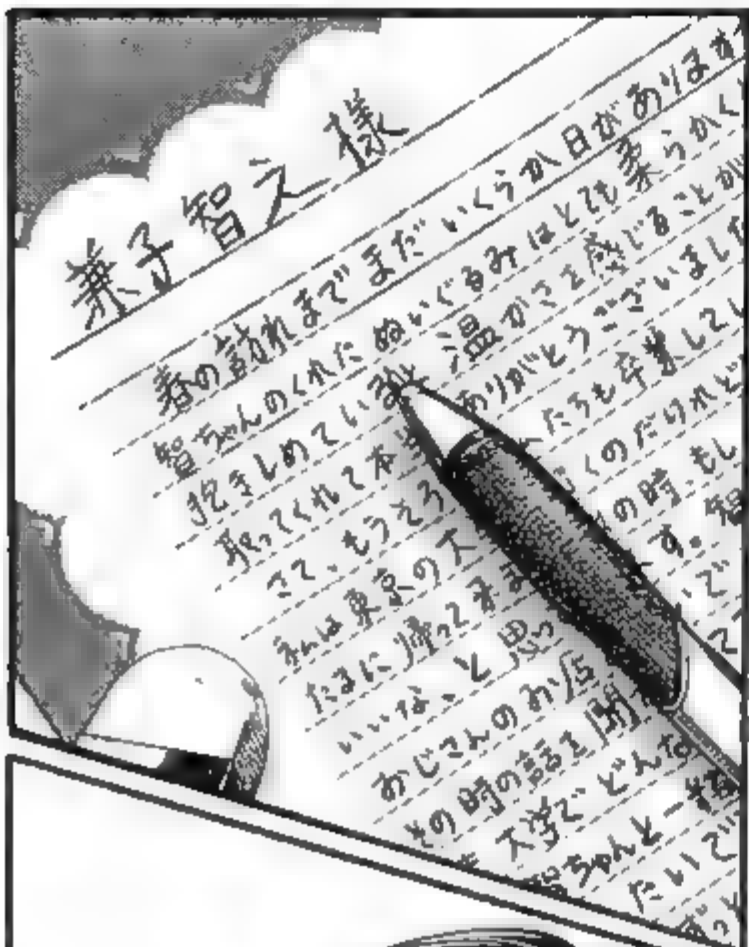 兼子智之様
春の訪れまでまだいくらか日があります
智ちゃんのくれたぬいぐるみはとても柔らかく
抱きしめていると温かさを感じることが
取ってくれて本当 ありがとうございました
さて、もうそろ たちも卒業してし
私は東京の大 くのだけれど
たまに帰って来 の時、もし
いいな、と思っ す。智
おじさんのお店 で
その時の話を聞 て
大学でどんな
智ちゃんと一緒
たいで
ずっと